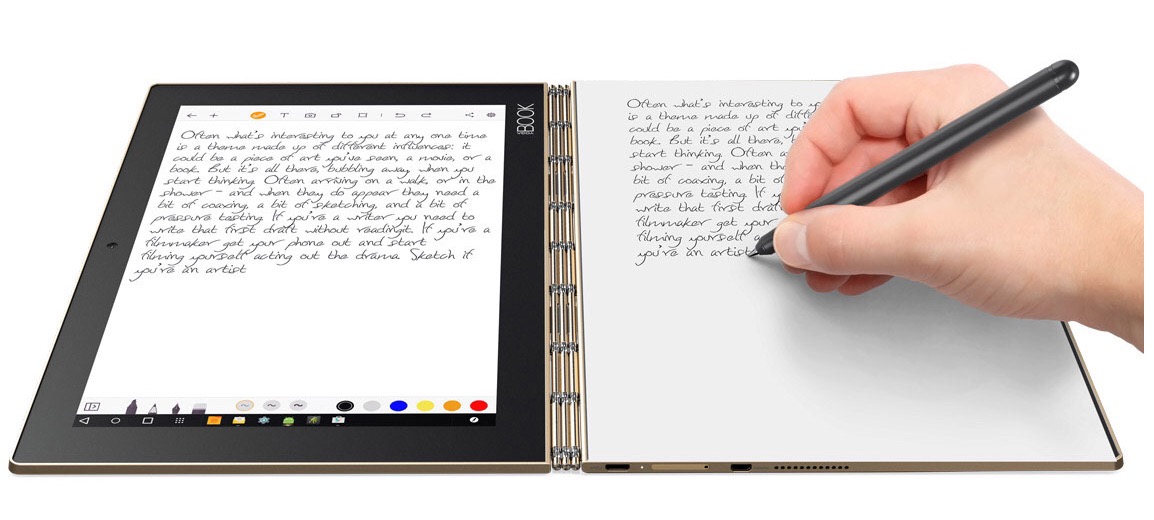 Often what's interesting to you at any one time
is a theme made up of different influences: it
could be a piece of art you've seen, a movie, or a
book. But it's all there, bubbling away when you
start thinking. Often arriving on a walk, or in the
shower – and when they do appear they need a
bit of coaxing, a bit of sketching, and a bit of
pressure testing. If you're a writer you need to
write that first draft without readingit. If you're a
filmmaker get your phone out and start
filming yourself acting out the drama. Sketch if
you're an artist
YOGA BOOK
Often what's interesting to
is a theme made up of
could be a piece of art
book. But it's all there,
start thinking. Often
shower – and when
bit of coaxing, a bit of
pressure testing. If
write that first draft
filmmaker get your
filming yourself
you're an artist